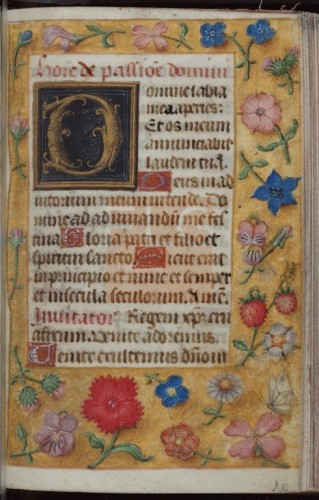 Hore de passiõe domini
Domine labia
mea aperies:
Et os meum
annunciabit
laudem tuã.
Deus in ad
iutorium meum intende. Do
mine ad adiuuandũ me fes
tina Gloria patri et filio et
spiritui sancto Sicut erat
in principio et nunc et semper
et in secula seculorum. Amẽ.
Inuitator Regem xp̃m cru
cifixum. Venite adoremus.
Venite exultemus dño in
10